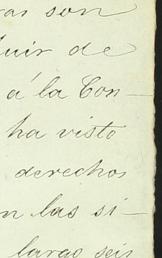 ras son
luir de
á la Con—
ha visto
derechos
n las si—
largo seis